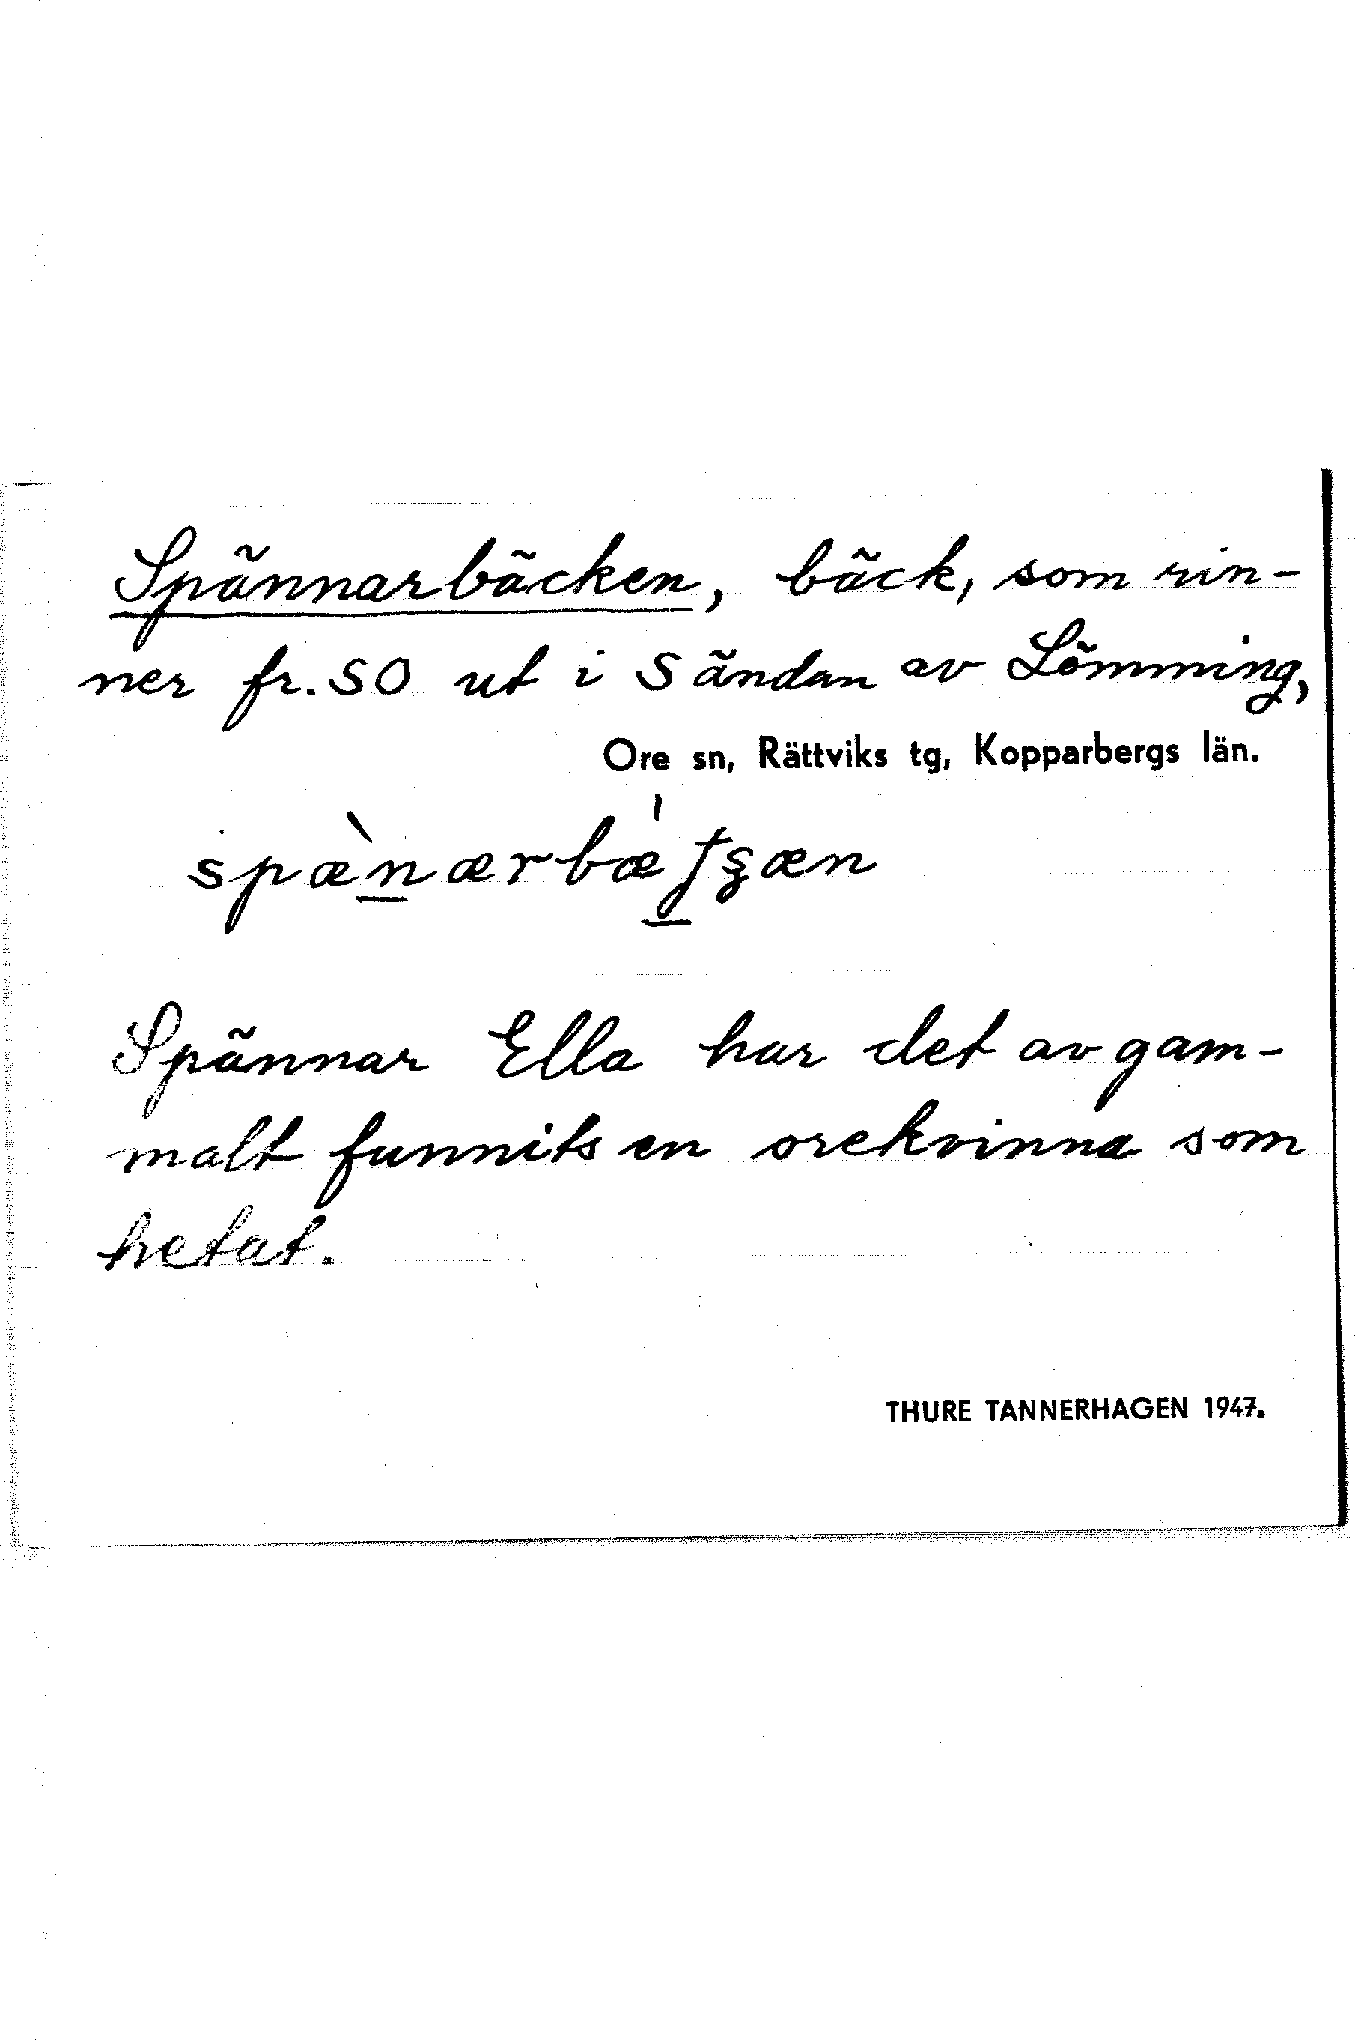 Spännarbäcken, bäck, som rin-
ner fr. SO ut i S ändan av Lömming,
Ore sn, Rättviks tg, Kopparbergs län.
Spännar Ella har det av gam-
malt funnits en orekvinna som
hetat.
THURE TANNERHAGEN 1947.